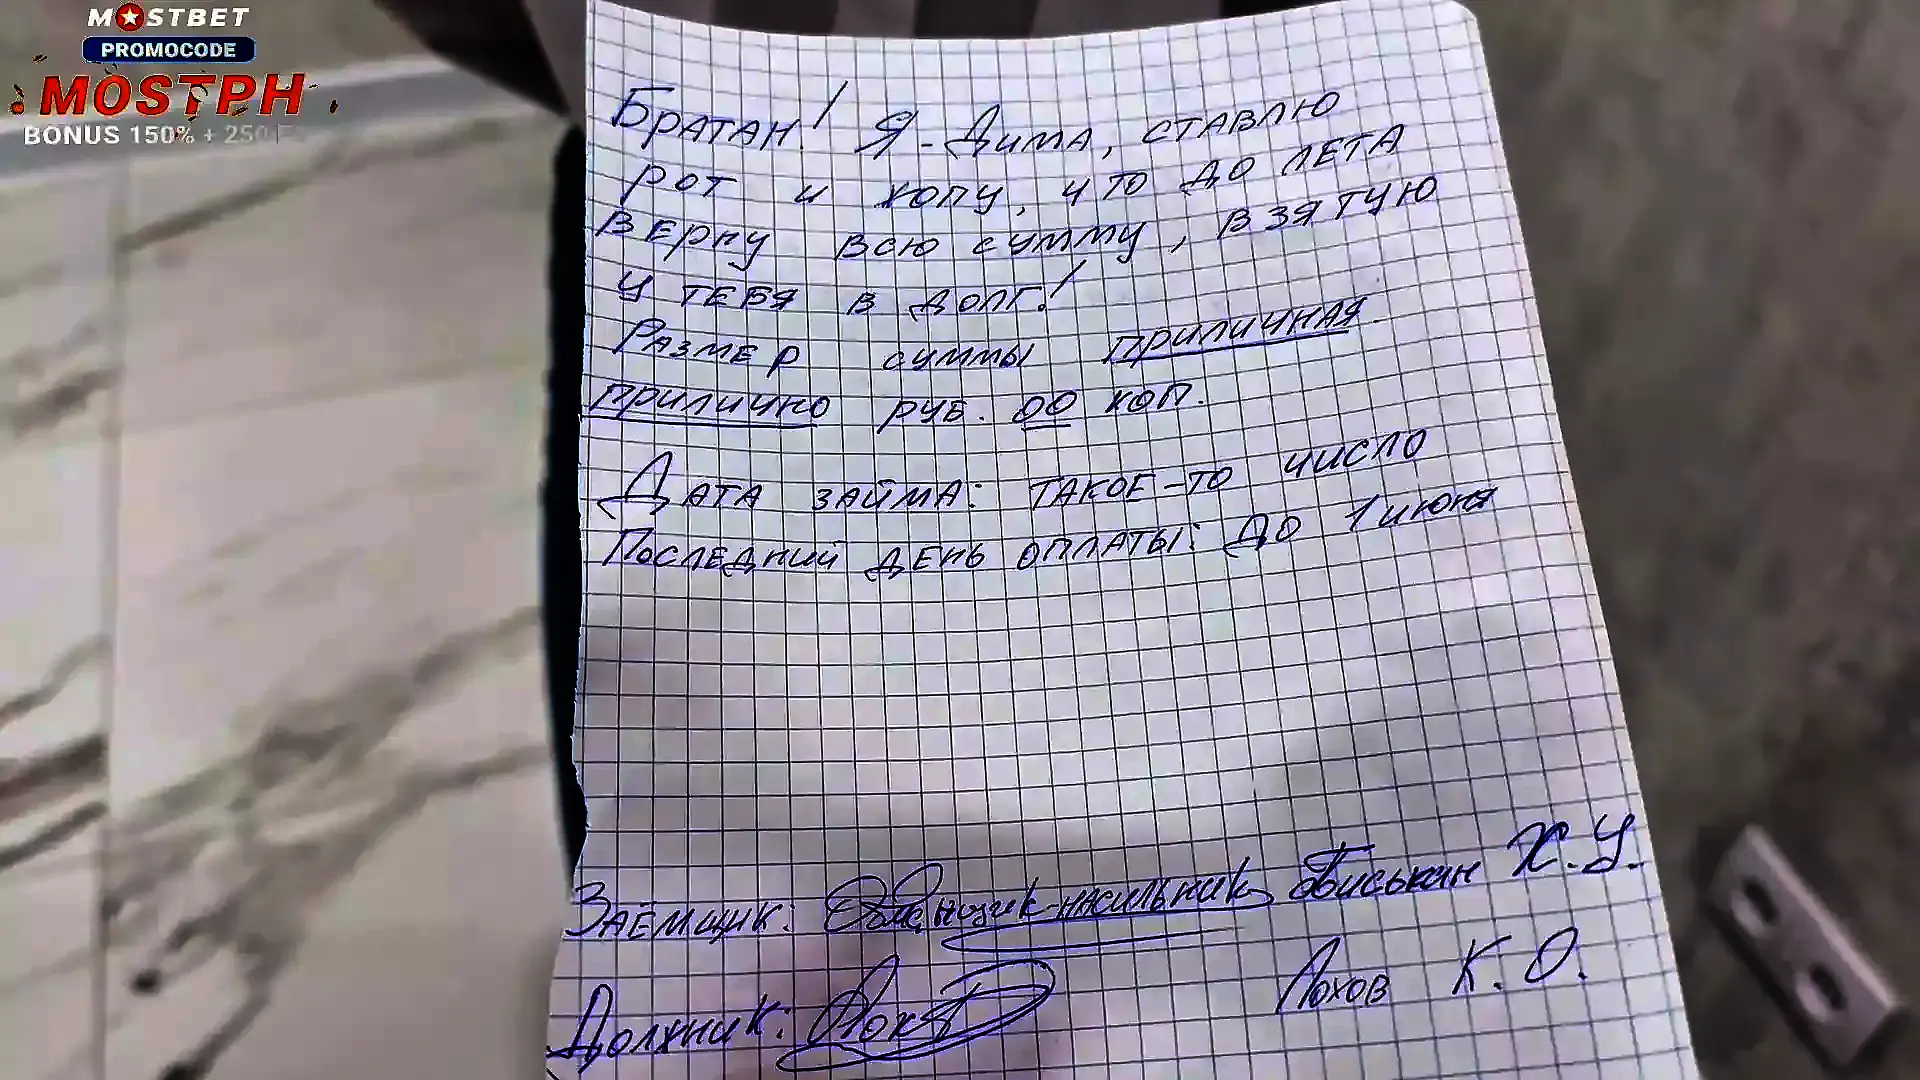 MOSTBET
PROMOCODE
MOSTPH
BONUS 150% + 250 FS
Братан! Я - Дима, ставлю
рот и жопу, что до лета
верну всю сумму, взятую
у тебя в долг!
Размер суммы приличная
прилично руб. 00 коп.
Дата займа: такое-то число
Последний день оплаты: до 1 июня
Заёмщик: Обманщик-насильник Х. У.
Должник: Лох Лохов К. О.